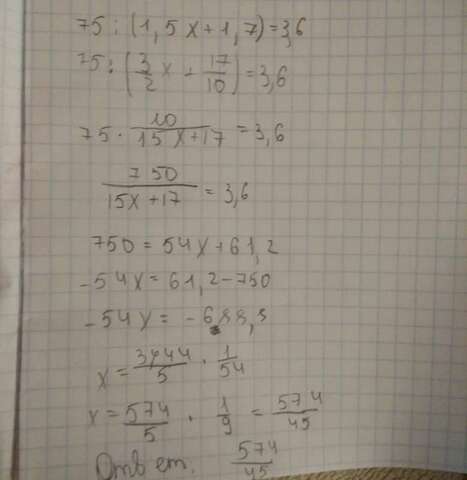 75 : (1,5x+1,7)=3,6
75 : (3/2 x + 17/10) = 3,6
75 · 10/(15x+17) = 3,6
750/(15x+17) = 3,6
750 = 54x+61,2
-54x = 61,2-750
-54x = -688,8
x = 3444/5 · 1/54
x = 574/5 · 1/9 = 574/45
Ответ. 574/45